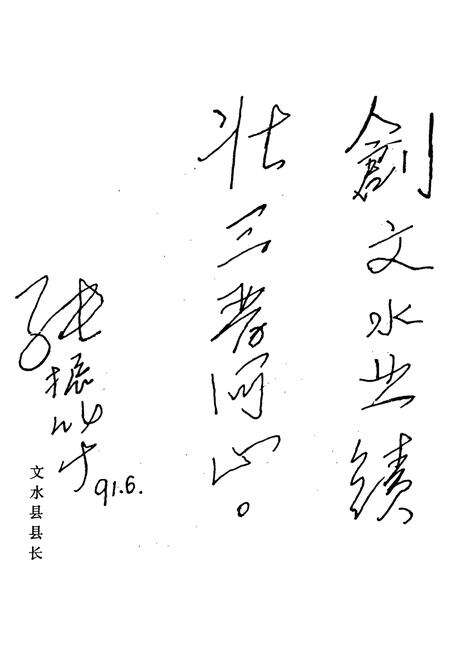 創文水业績
壮三晋河山。
张振
91.6.
文水县县长